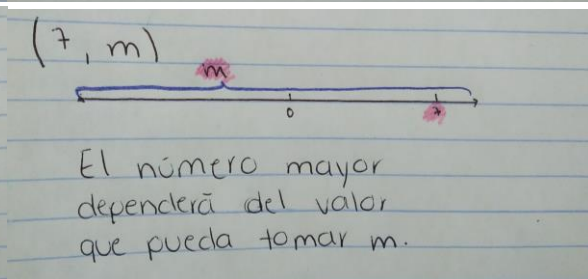 (7, m)
m
0 7
El número mayor
dependerá del valor
que pueda tomar m.